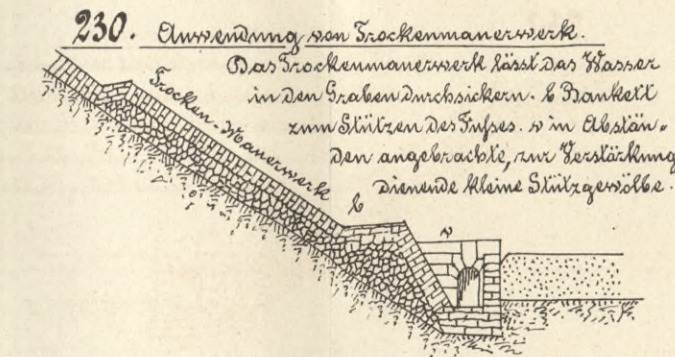 230. Anwendung von Trockenmauerwerk.
Das Trockenmauerwerk lässt das Wasser
in den Graben durchsickern. b Bankett
zum Stützen des Fußes. v in Abstän=
den angebrachte, zur Verstärkung
dienende kleine Stützgewölbe.
Trocken-Mauerwerk
b
v